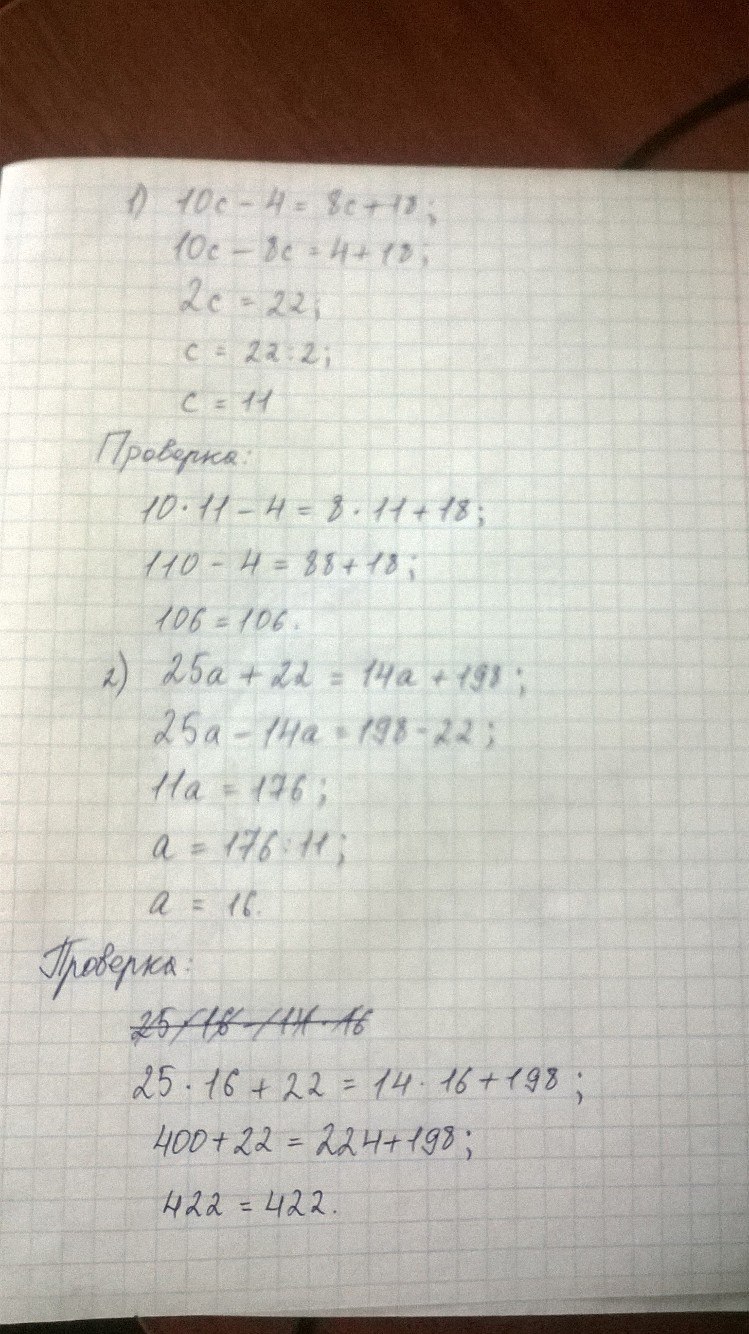 1) 10c - 4 = 8c + 18;
10c - 8c = 4 + 18;
2c = 22;
c = 22 : 2;
c = 11
Проверка:
10 · 11 - 4 = 8 · 11 + 18;
110 - 4 = 88 + 18;
106 = 106.
2) 25a + 22 = 14a + 198;
25a - 14a = 198 - 22;
11a = 176;
a = 176 : 11;
a = 16.
Проверка:
25 · 16 + 22 = 14 · 16 + 198;
400 + 22 = 224 + 198;
422 = 422.